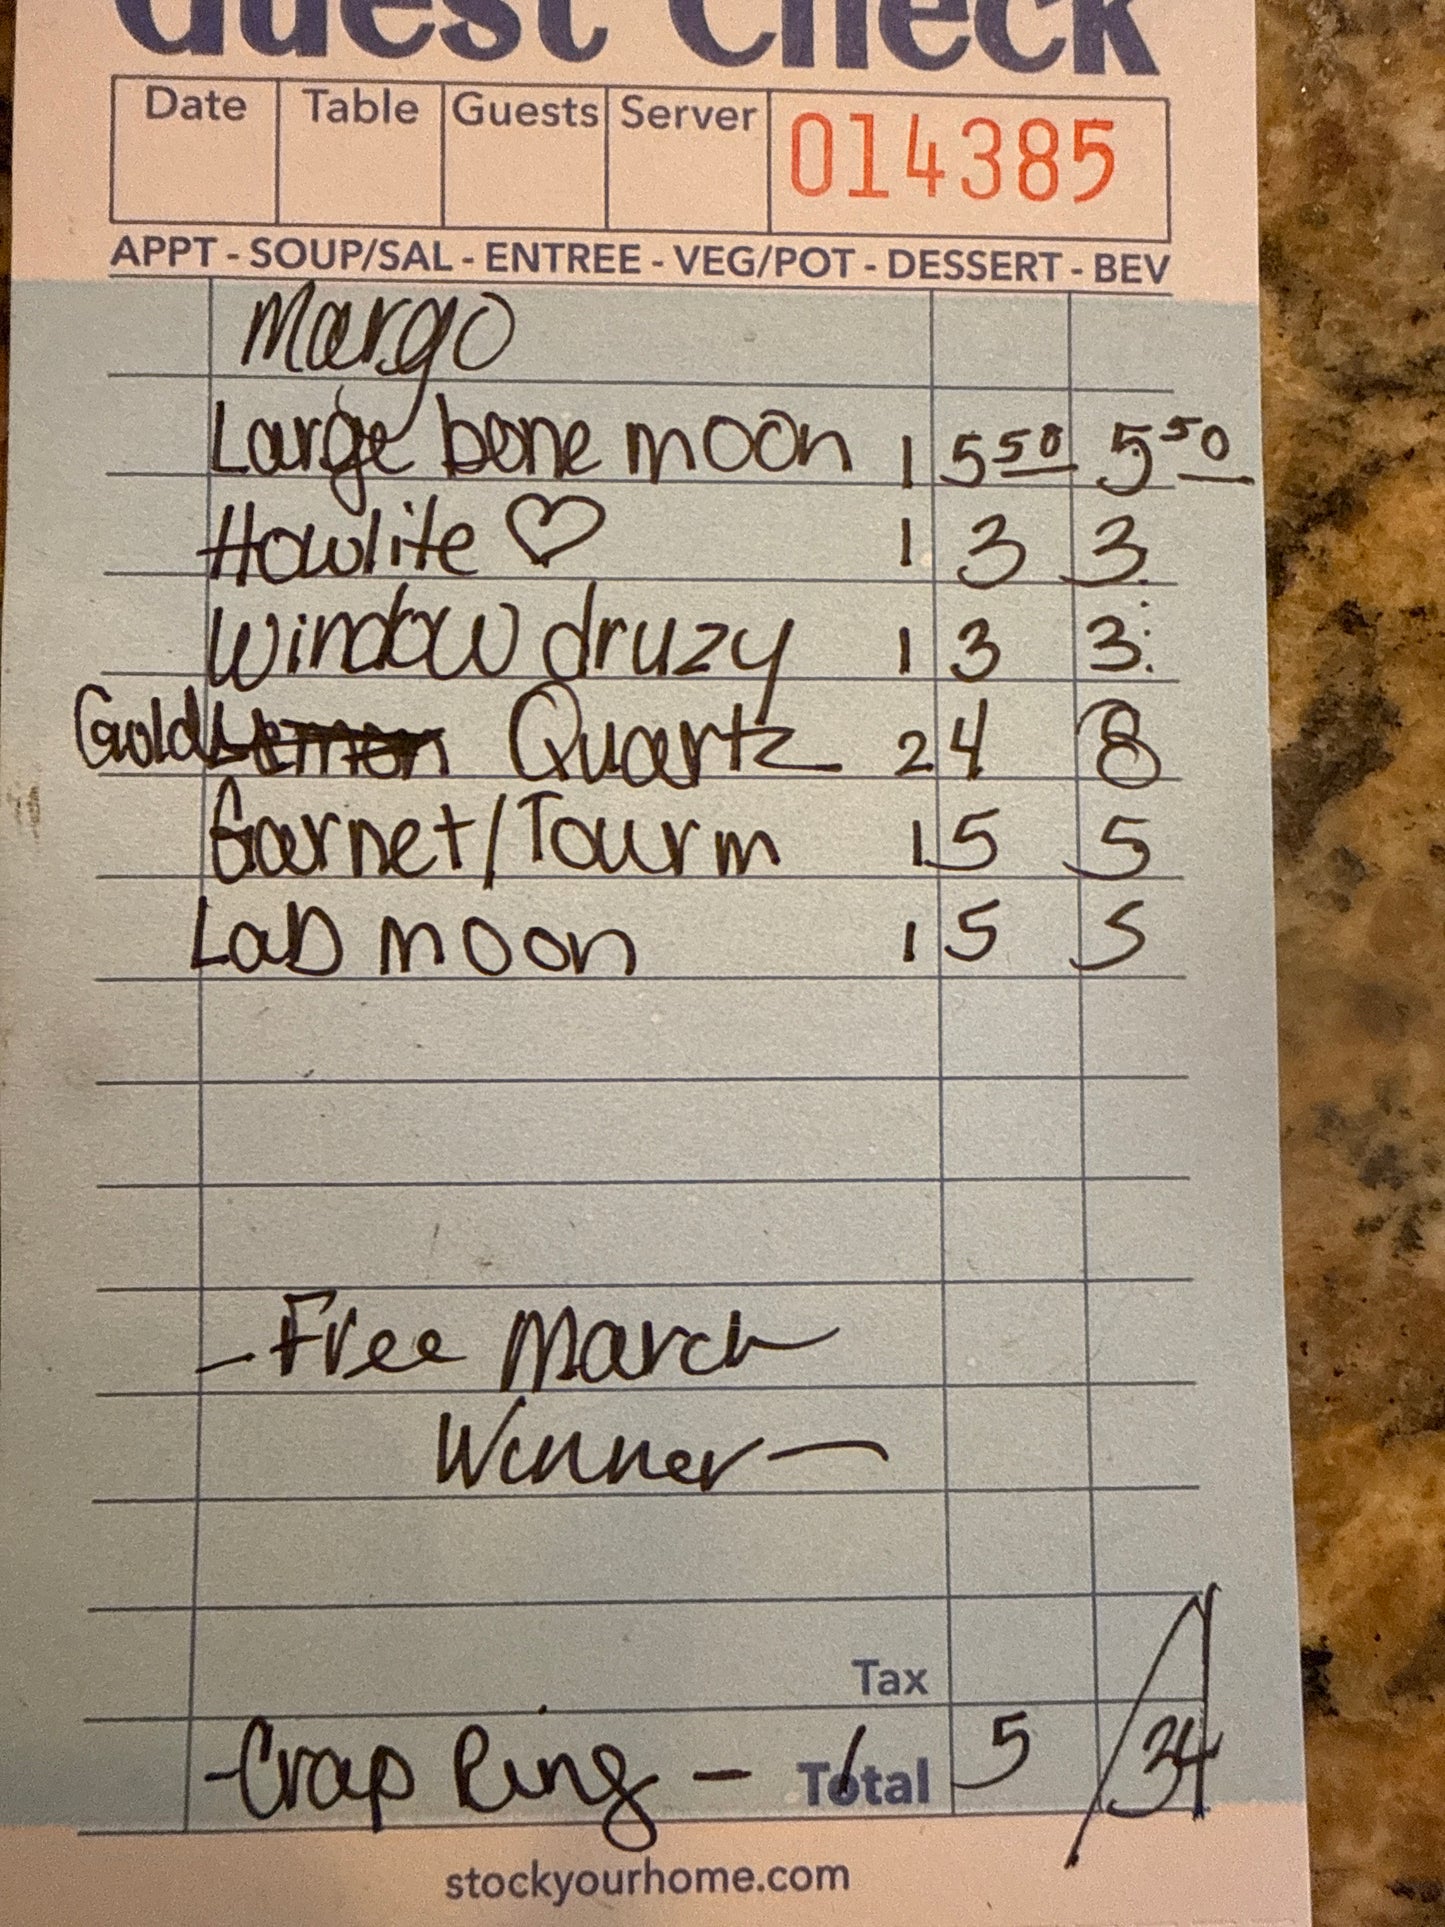 Guest Check
Date Table Guests Server 014385
APPT - SOUP/SAL - ENTREE - VEG/POT - DESSERT - BEV
Margo
Large bone moon 1 5 50 5 50
Howlite ♡ 1 3 3
Window druzy 1 3 3
Gold Lemon Quartz 2 4 8
Garnet/Tourm 1 5 5
Lab moon 1 5 5
- Free March
Winner -
Tax
- Crap Ring - 1 Total 5 34
stockyourhome.com